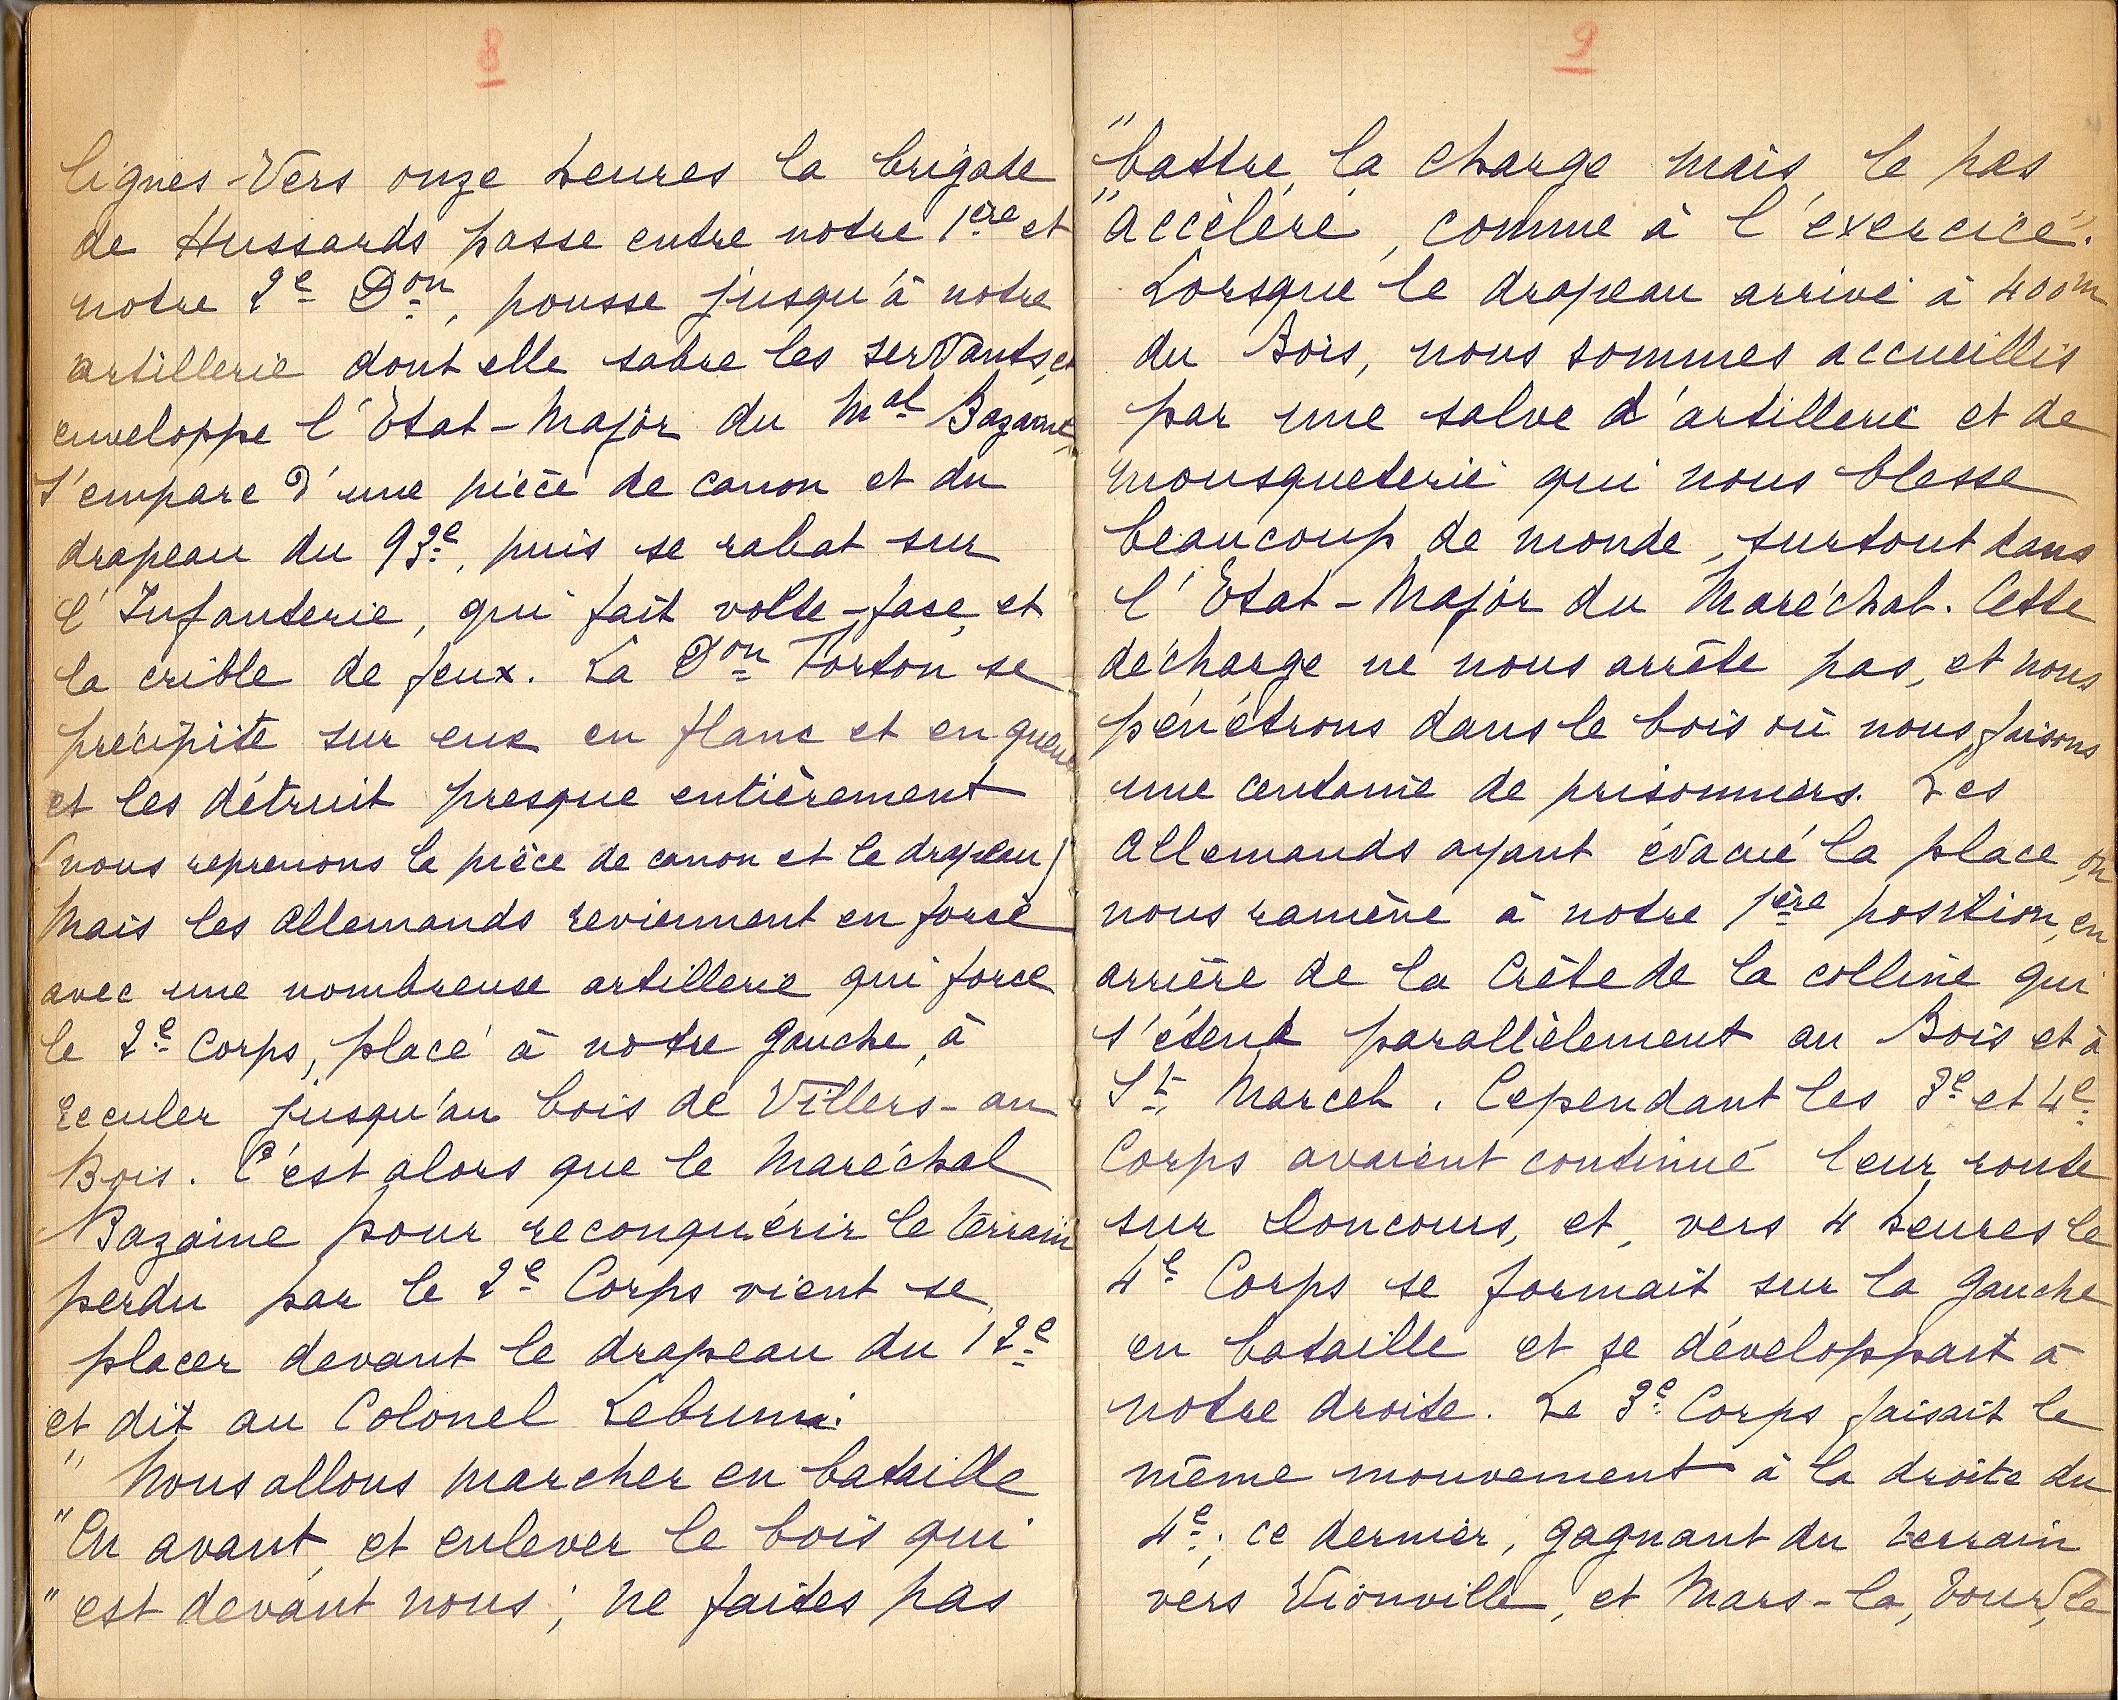 8
lignes - Vers onze heures la brigade
de Hussards passe entre notre 1ère et
notre 2e Don, pousse jusqu'à notre
artillerie dont elle sabre les servants, et
enveloppe l'Etat-Major du Mal Bazaine,
s'empare d'une pièce de canon et du
drapeau du 93e, puis se rabat sur
l'Infanterie, qui fait volte-face, et
la crible de feux. La Don Forton se
précipite sur eux en flanc et en queue
et les détruit presque entièrement
(nous reprenons la pièce de canon et le drapeau)
Mais les Allemands reviennent en force
avec une nombreuse artillerie qui force
le 2e Corps, placé à notre gauche, à
reculer jusqu'au bois de Villers-au
Bois. C'est alors que le Maréchal
Bazaine pour reconquérir le terrain
perdu par le 2e Corps vient se
placer devant le drapeau du 12e
et dit au Colonel Lebrun:
" Nous allons marcher en bataille
" En avant et enlever le bois qui
" est devant nous; ne faites pas
9
" battre la charge mais le pas
" accéléré, comme à l'exercice".
Lorsque le drapeau arrive à 400m
du Bois, nous sommes accueillis
par une salve d'artillerie et de
mousqueterie qui nous blesse
beaucoup de monde, surtout dans
l'Etat-Major du Maréchal. Cette
décharge ne nous arrête pas, et nous
pénétrons dans le bois où nous faisons
une centaine de prisonniers. Les
Allemands ayant évacué la place, on
nous ramène à notre 1ère position, en
arrière de la Crête de la colline qui
s'étend parallèlement au Bois et à
St Marcel. Cependant les 3e et 4e
Corps avaient continué leur route
sur Doncours, et, vers 4 heures le
4e Corps se formait sur la gauche
en bataille et se développait à
notre droite. Le 3e Corps faisait le
même mouvement à la droite du
4e; ce dernier, gagnant du terrain
vers Vionville, et Mars-la, Tour, le